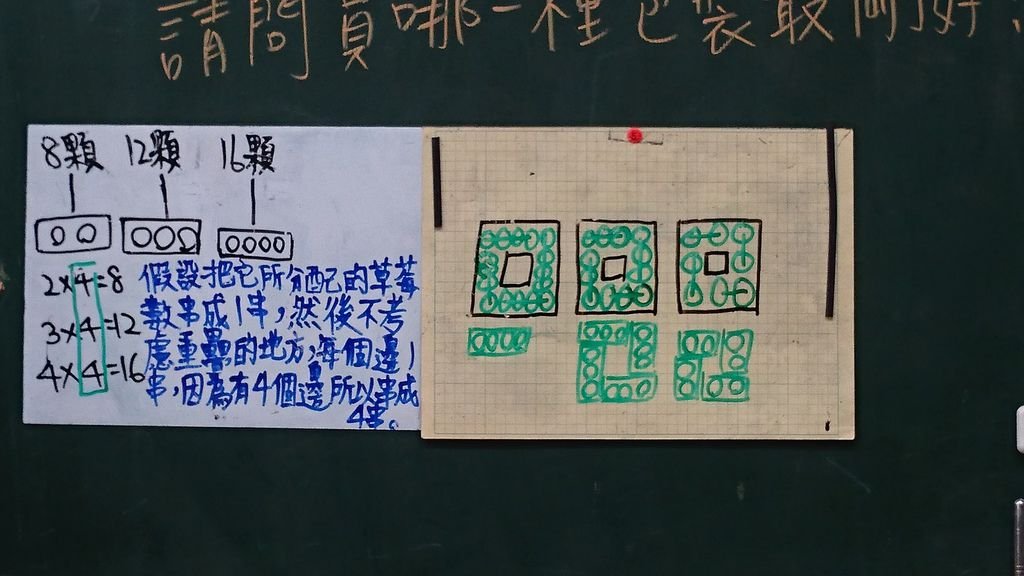 請問買哪一種包裝最剛好?
8顆 12顆 16顆
2×4=8
3×4=12
4×4=16
假設把它所分配的草莓
數串成1串,然後不考
慮重疊的地方,每個邊1
串,因為有4個邊所以串成
4串。